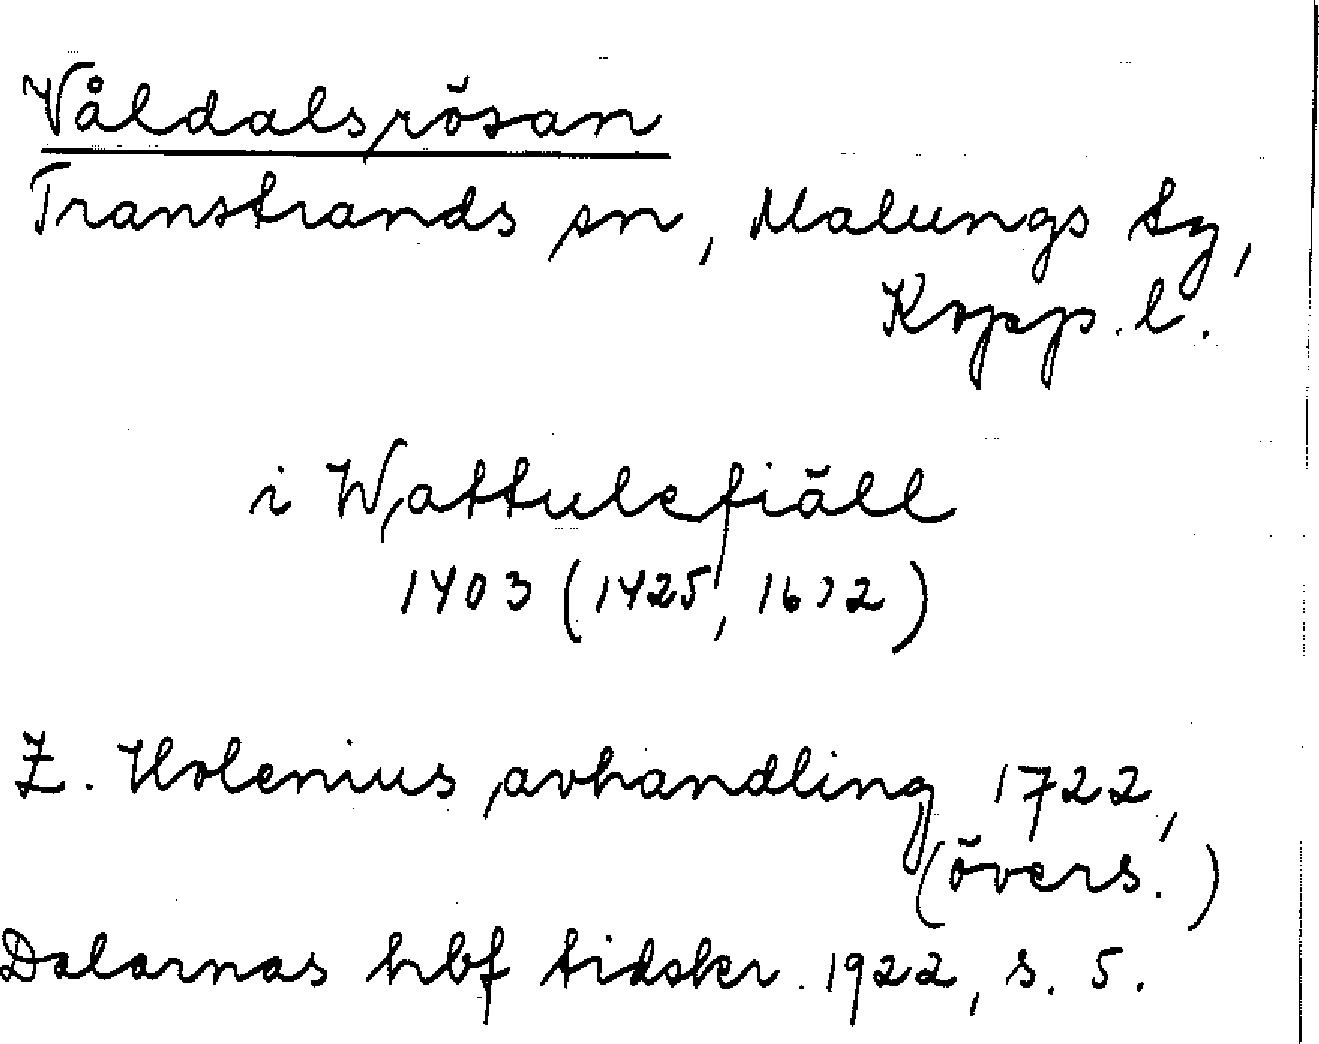 Våldalsrösan
Transtrands sn, Malungs tg,
Kopp. l.
i Wattulefiäll
1403 (1425, 1632)
Z. Holenius avhandling 1722,
(övers.)
Dalarnas hbf tidskr. 1922, s. 5.